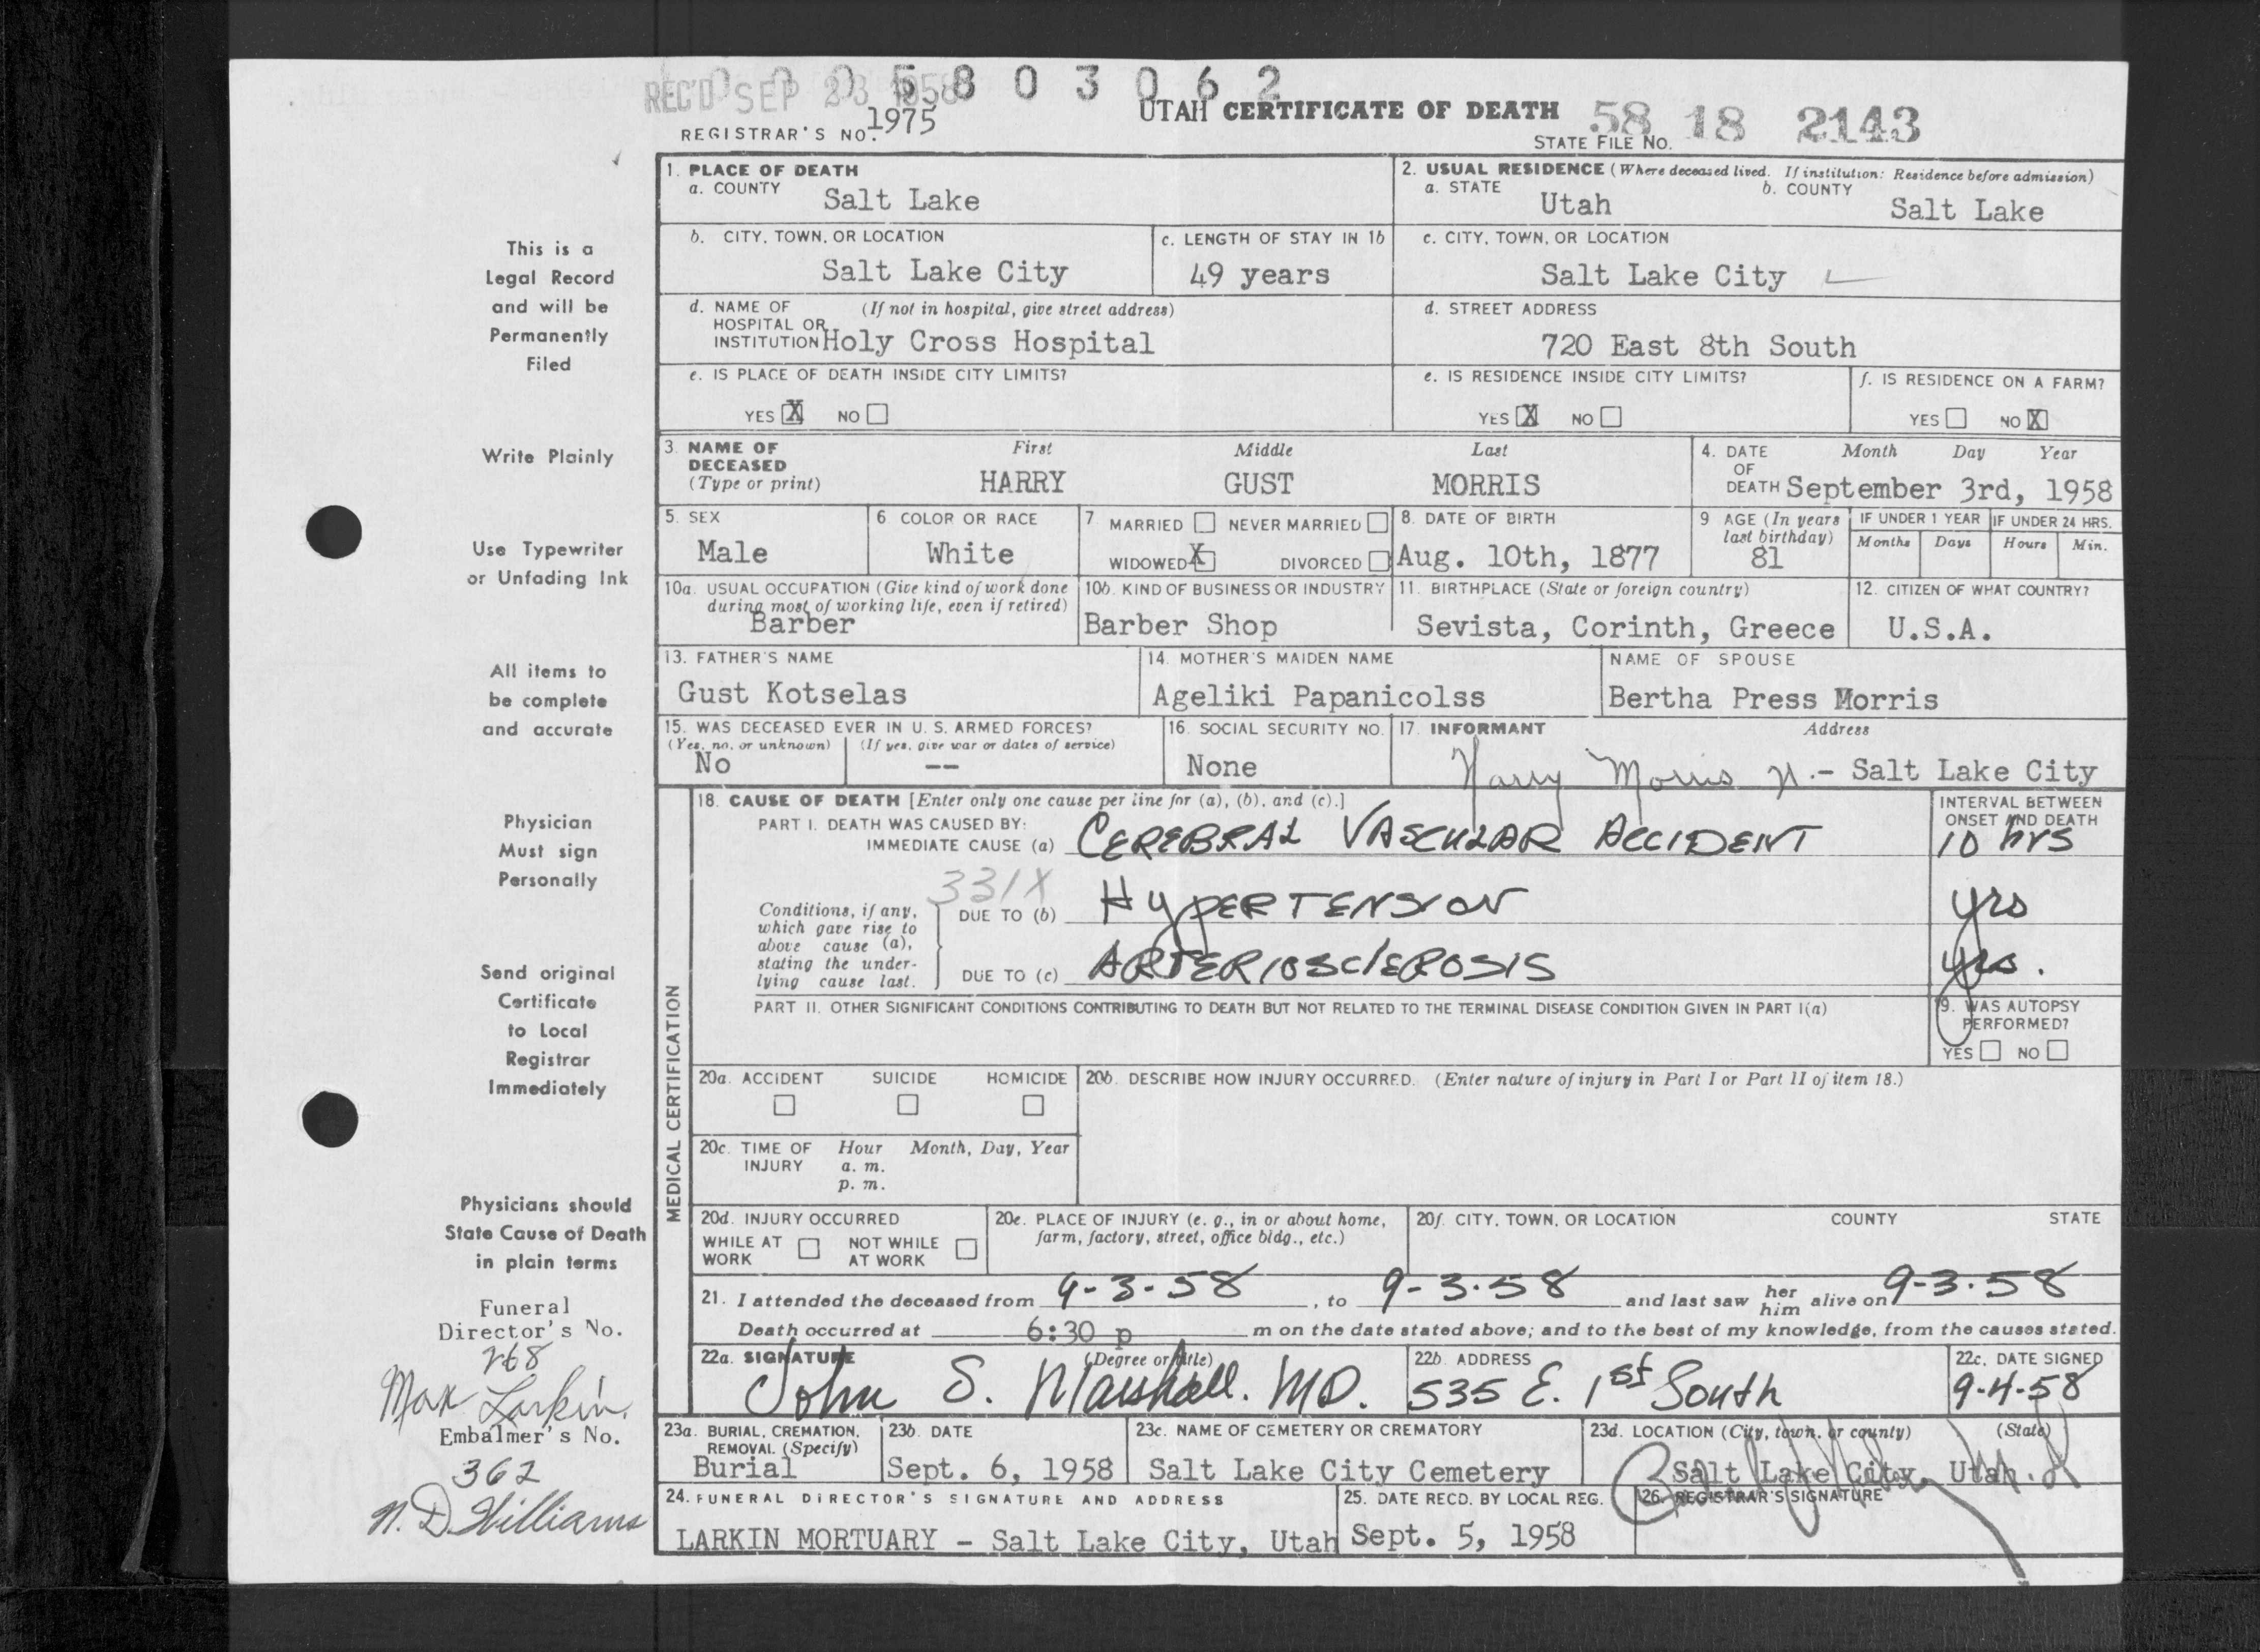 0 0 0 5 8 0 3 0 6 2
REC'D SEP 23 1958
REGISTRAR'S NO. 1975
UTAH CERTIFICATE OF DEATH
STATE FILE NO. 58 18 2143
This is a
Legal Record
and will be
Permanently
Filed
Write Plainly
Use Typewriter
or Unfading Ink
All items to
be complete
and accurate
Physician
Must sign
Personally
Send original
Certificate
to Local
Registrar
Immediately
Physicians should
State Cause of Death
in plain terms
Funeral
Director's No.
268
Max Larkin
Embalmer's No.
362
N. D. Williams
1. PLACE OF DEATH
a. COUNTY Salt Lake
2. USUAL RESIDENCE (Where deceased lived. If institution: Residence before admission)
a. STATE Utah b. COUNTY Salt Lake
b. CITY, TOWN, OR LOCATION Salt Lake City
c. LENGTH OF STAY IN 1b 49 years
c. CITY, TOWN, OR LOCATION Salt Lake City
d. NAME OF (If not in hospital, give street address)
HOSPITAL OR
INSTITUTION Holy Cross Hospital
d. STREET ADDRESS
720 East 8th South
e. IS PLACE OF DEATH INSIDE CITY LIMITS?
YES X NO
e. IS RESIDENCE INSIDE CITY LIMITS?
YES X NO
f. IS RESIDENCE ON A FARM?
YES NO X
3. NAME OF DECEASED (Type or print)
First Middle Last
HARRY GUST MORRIS
4. DATE OF DEATH Month Day Year
September 3rd, 1958
5. SEX
Male
6 COLOR OR RACE
White
7 MARRIED NEVER MARRIED
WIDOWED X DIVORCED
8. DATE OF BIRTH
Aug. 10th, 1877
9 AGE (In years last birthday)
81
IF UNDER 1 YEAR
Months Days
IF UNDER 24 HRS.
Hours Min.
10a. USUAL OCCUPATION (Give kind of work done
during most of working life, even if retired)
Barber
10b. KIND OF BUSINESS OR INDUSTRY
Barber Shop
11. BIRTHPLACE (State or foreign country)
Sevista, Corinth, Greece
12. CITIZEN OF WHAT COUNTRY?
U.S.A.
13. FATHER'S NAME
Gust Kotselas
14. MOTHER'S MAIDEN NAME
Ageliki Papanicolss
NAME OF SPOUSE
Bertha Press Morris
15. WAS DECEASED EVER IN U. S. ARMED FORCES?
(Yes, no, or unknown) (If yes, give war or dates of service)
No --
16. SOCIAL SECURITY NO.
None
17. INFORMANT Address
Harry Morris Jr. - Salt Lake City
MEDICAL CERTIFICATION
18. CAUSE OF DEATH [Enter only one cause per line for (a), (b), and (c).]
INTERVAL BETWEEN
ONSET AND DEATH
PART I. DEATH WAS CAUSED BY:
IMMEDIATE CAUSE (a) CEREBRAL VASCULAR ACCIDENT 10 hrs
331X
Conditions, if any,
which gave rise to
above cause (a),
stating the under-
lying cause last.
DUE TO (b) HYPERTENSION yrs
DUE TO (c) ARTERIOSCLEROSIS yrs.
PART II. OTHER SIGNIFICANT CONDITIONS CONTRIBUTING TO DEATH BUT NOT RELATED TO THE TERMINAL DISEASE CONDITION GIVEN IN PART I(a)
19. WAS AUTOPSY
PERFORMED?
YES NO
20a. ACCIDENT SUICIDE HOMICIDE
20b. DESCRIBE HOW INJURY OCCURRED. (Enter nature of injury in Part I or Part II of item 18.)
20c. TIME OF INJURY Hour Month, Day, Year
a. m.
p. m.
20d. INJURY OCCURRED
WHILE AT WORK NOT WHILE AT WORK
20e. PLACE OF INJURY (e. g., in or about home,
farm, factory, street, office bldg., etc.)
20f. CITY, TOWN, OR LOCATION COUNTY STATE
21. I attended the deceased from 9-3-58, to 9-3-58 and last saw her him alive on 9-3-58
Death occurred at 6:30 p m on the date stated above; and to the best of my knowledge, from the causes stated.
22a. SIGNATURE (Degree or title)
John S. Marshall. MD.
22b. ADDRESS
535 E. 1st South
22c. DATE SIGNED
9-4-58
23a. BURIAL, CREMATION,
REMOVAL (Specify)
Burial
23b. DATE
Sept. 6, 1958
23c. NAME OF CEMETERY OR CREMATORY
Salt Lake City Cemetery
23d. LOCATION (City, town, or county) (State)
Salt Lake City, Utah
24. FUNERAL DIRECTOR'S SIGNATURE AND ADDRESS
LARKIN MORTUARY - Salt Lake City, Utah
25. DATE RECD. BY LOCAL REG.
Sept. 5, 1958
26. REGISTRAR'S SIGNATURE